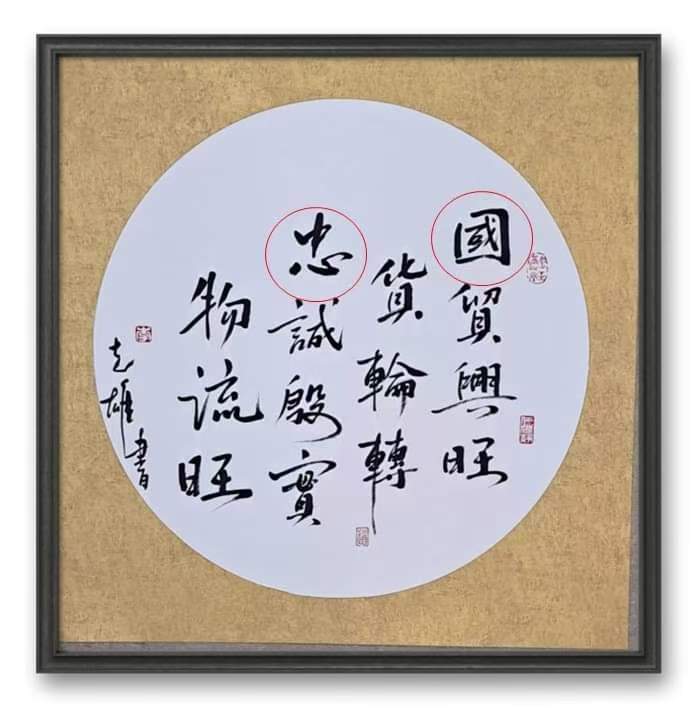 國貿興旺
貨輪轉
忠誠殷實
物流旺
志雄書